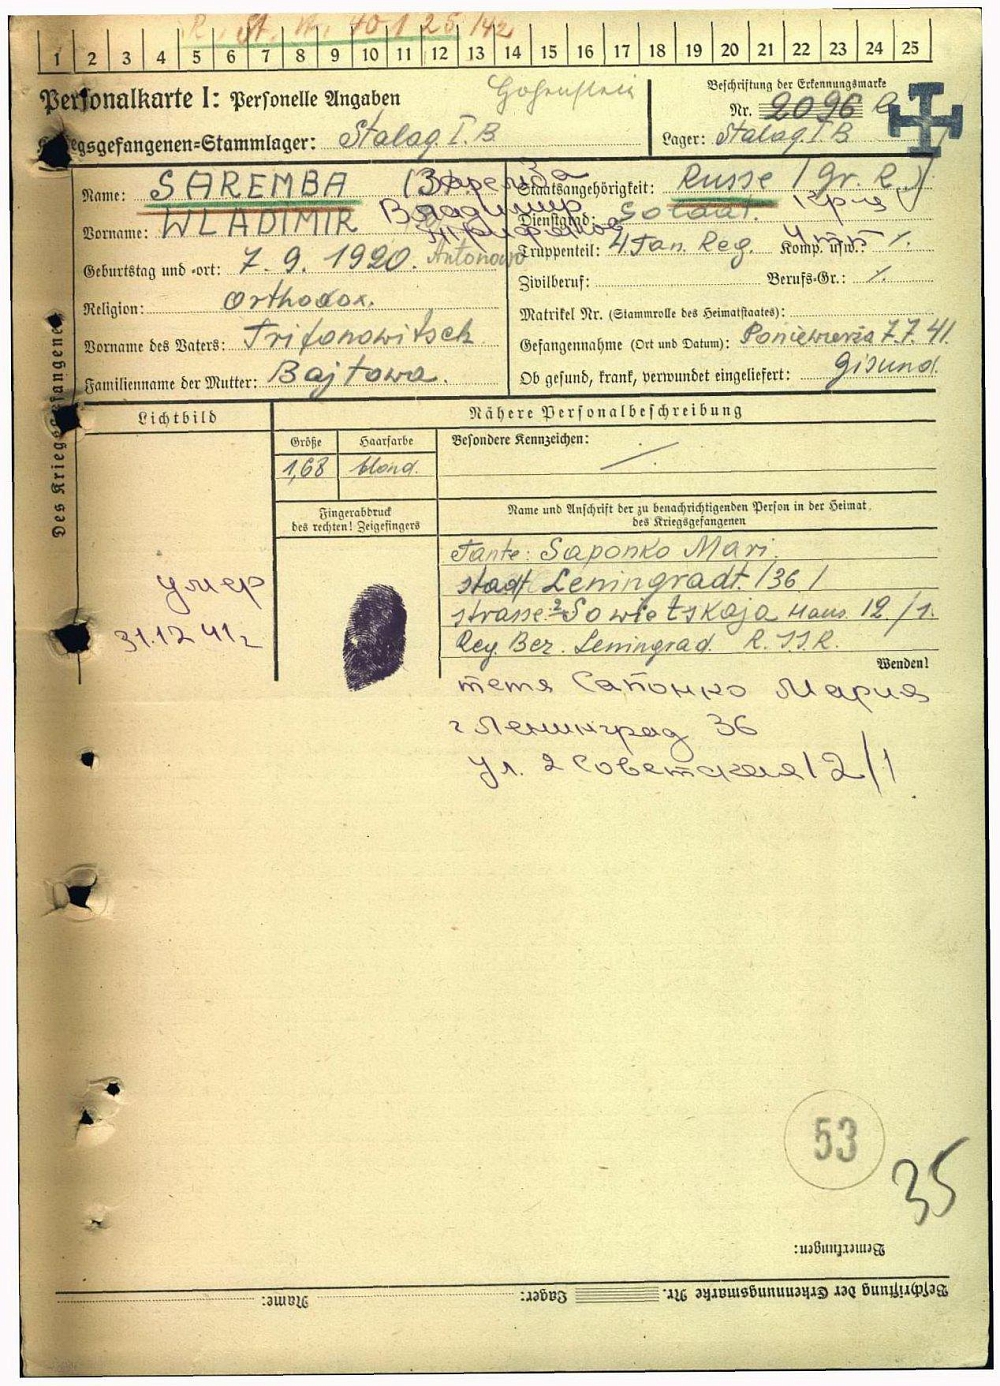 R. St. A. 401 25/42
1 2 3 4 5 6 7 8 9 10 11 12 13 14 15 16 17 18 19 20 21 22 23 24 25
Personalkarte I: Personelle Angaben
Hohenstein
Beschriftung der Erkennungsmarke
Nr. 2096
Kriegsgefangenen-Stammlager: Stalag I.B
Lager: Stalag I B
Des Kriegsgefangenen
Name: SAREMBA (Заремба
Staatsangehörigkeit: Russe / Gr. R.)
Vorname: WLADIMIR Владимир
Dienstgrad: Soldat.
Truppenteil: 4 Tan. Reg. Komp. usw.: ⁒
Geburtstag und -ort: 7. 9. 1920. Antonowo
Zivilberuf: Berufs-Gr.: ⁒
Religion: Orthodox.
Matrikel Nr. (Stammrolle des Heimatstaates):
Vorname des Vaters: Trifonowitsch
Gefangennahme (Ort und Datum): Poniewieria 7.7.41.
Familienname der Mutter: Bajtowa.
Ob gesund, krank, verwundet eingeliefert: Gisund.
Lichtbild
Nähere Personalbeschreibung
Größe Haarfarbe Besondere Kennzeichen:
1,68 blond. —
Fingerabdruck
des rechten! Zeigefingers
Name und Anschrift der zu benachrichtigenden Person in der Heimat
des Kriegsgefangenen
Tante: Saponko Mari.
stadt Leningradt. /36/
strasse: 2 Sowietskaja Haus. 12/1.
Reg. Bez. Leningrad. R.SS.R.
Wenden!
умер
31.12 41г
тетя Сапонко Мария
г Ленинград 36
ул. 2 Советская 12/1
53
35
Bemerkungen:
Beschriftung der Erkennungsmarke Nr. Lager: Name: